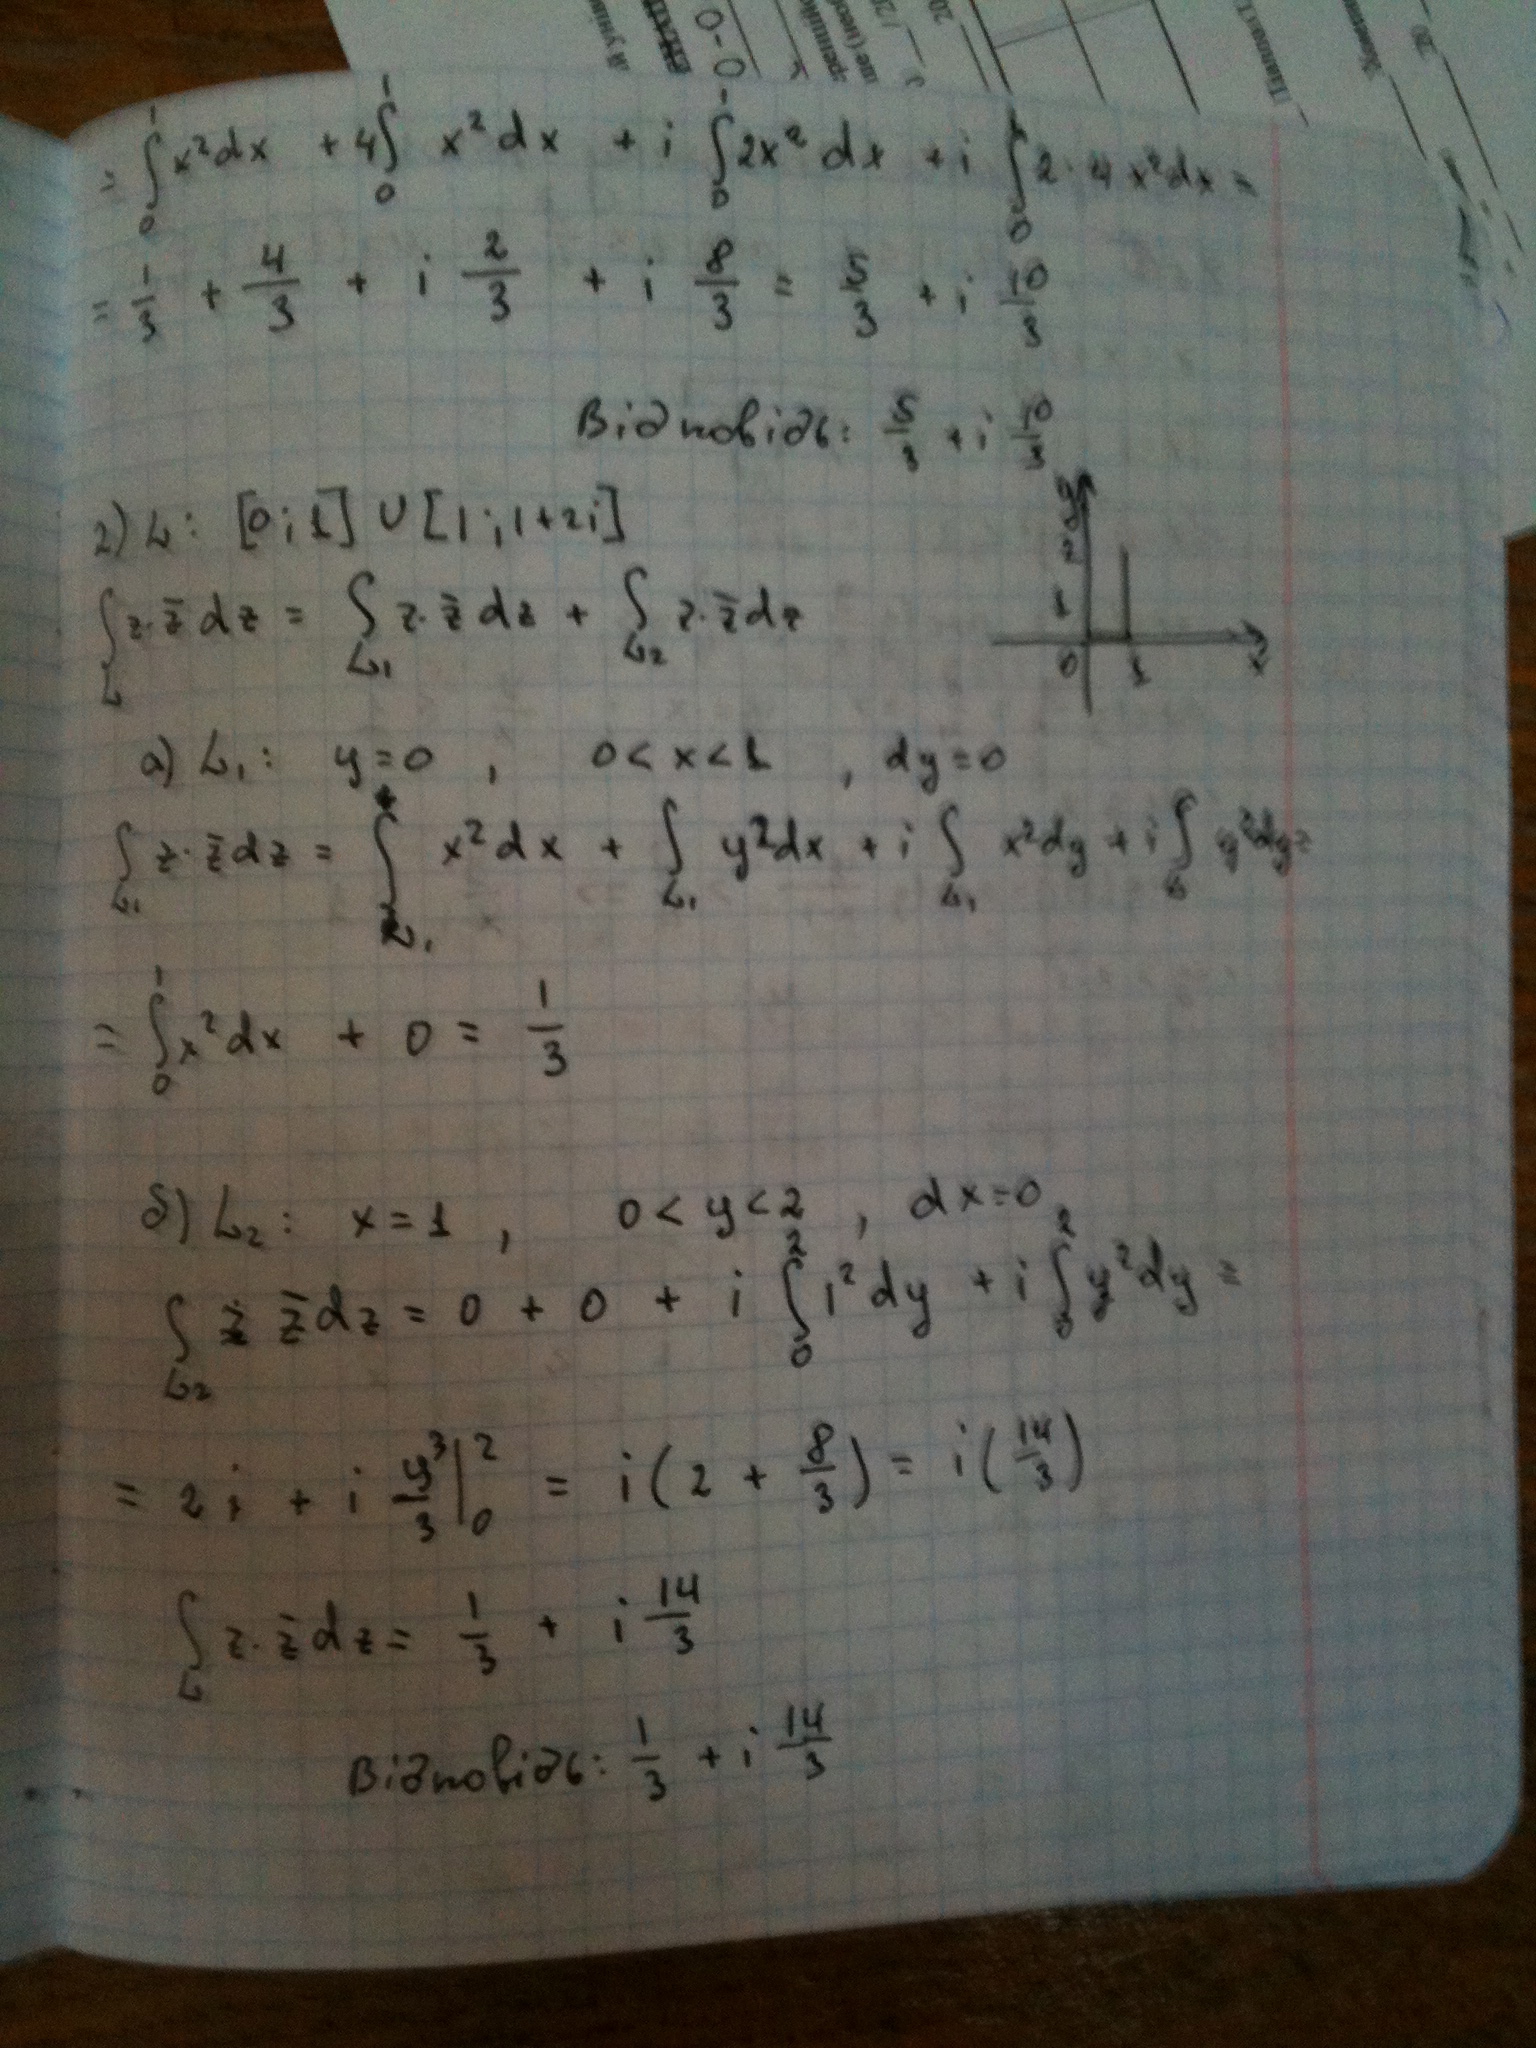 = ∫₀¹ x² dx + 4∫₀¹ x² dx + i ∫₀¹ 2x² dx + i ∫₀¹ 2·4x² dx =
= 1/3 + 4/3 + i 2/3 + i 8/3 = 5/3 + i 10/3
Відповідь: 5/3 + i 10/3
2) L: [0;1] ∪ [1;1+2i]
∫_L z·z̄ dz = ∫_L₁ z·z̄ dz + ∫_L₂ z·z̄ dz
y
2
1
0 1 x
а) L₁: y=0, 0<x<1, dy=0
∫_L₁ z·z̄ dz = ∫_L₁ x² dx + ∫_L₁ y² dx + i ∫_L₁ x² dy + i ∫_L y² dy =
= ∫₀¹ x² dx + 0 = 1/3
б) L₂: x=1, 0<y<2, dx=0
∫_L₂ z z̄ dz = 0 + 0 + i ∫₀² 1² dy + i ∫₀² y² dy =
= 2i + i y³/3 |₀² = i(2 + 8/3) = i(14/3)
∫_L z·z̄ dz = 1/3 + i 14/3
Відповідь: 1/3 + i 14/3